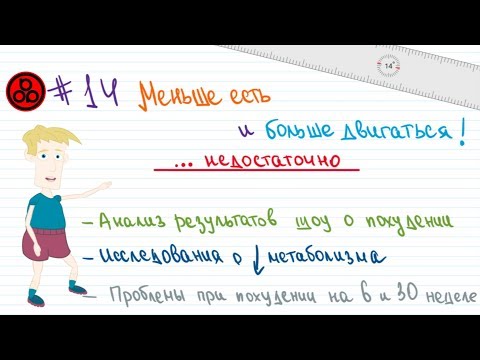 #14 Меньше есть
и больше двигаться!
... недостаточно
– Анализ результатов шоу о похудении
– Исследования о ↓ метаболизма
– Проблемы при похудении на 6 и 30 неделе
14°